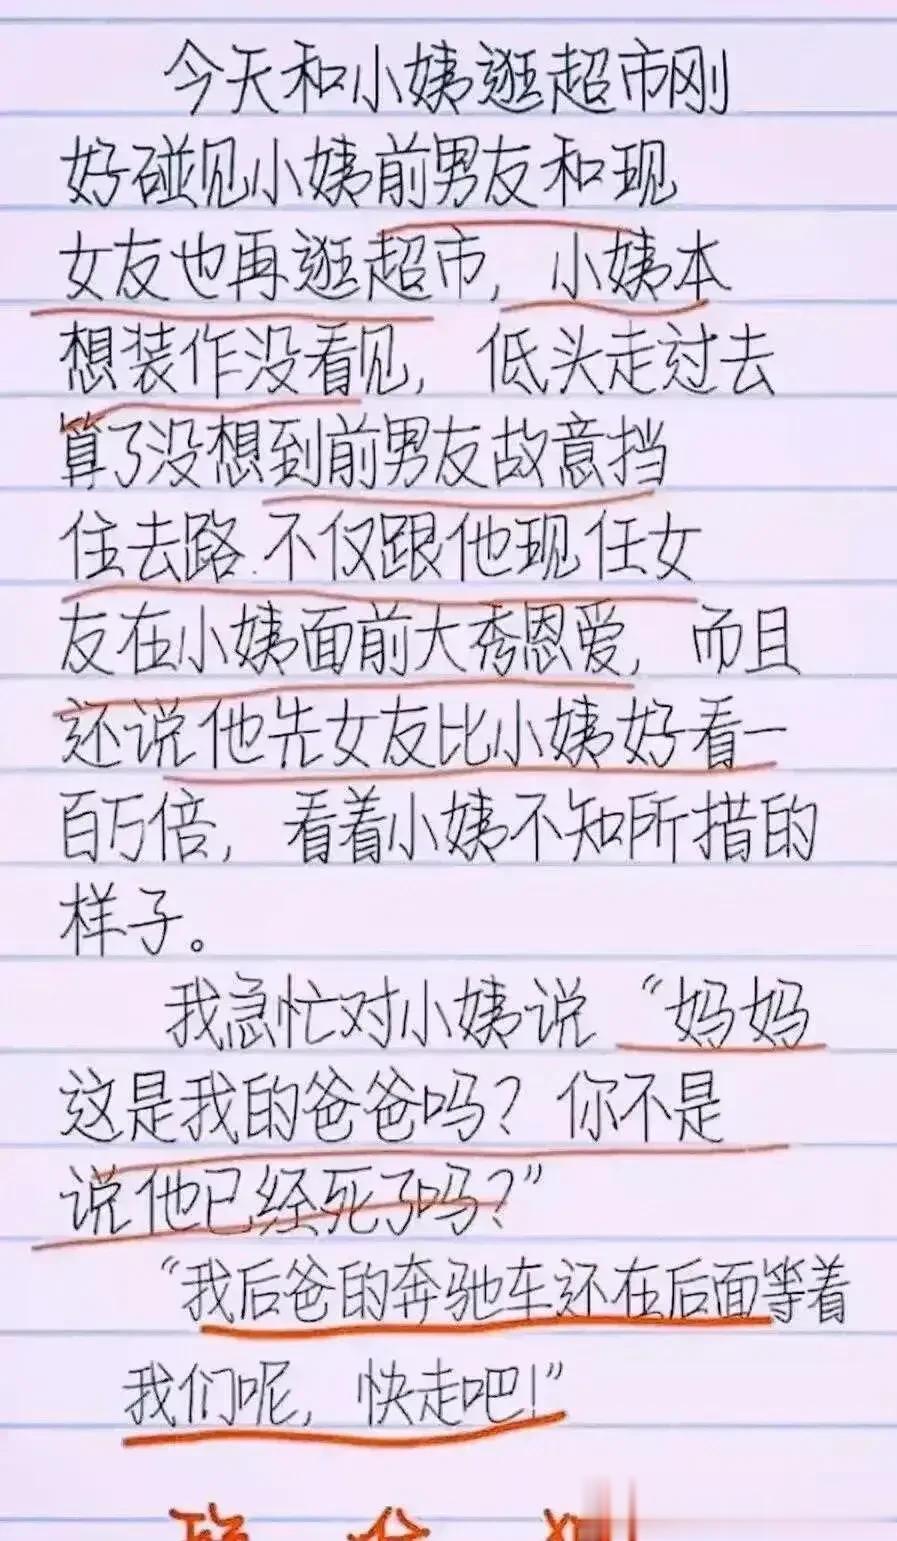 今天和小姨逛超市刚
好碰见小姨前男友和现
女友也再逛超市，小姨本
想装作没看见，低头走过去
算了没想到前男友故意挡
住去路.不仅跟他现任女
友在小姨面前大秀恩爱，而且
还说他先女友比小姨好看一
百万倍，看着小姨不知所措的
样子。
我急忙对小姨说“妈妈
这是我的爸爸吗？你不是
说他已经死了吗？”
“我后爸的奔驰车还在后面等着
我们呢，快走吧！”